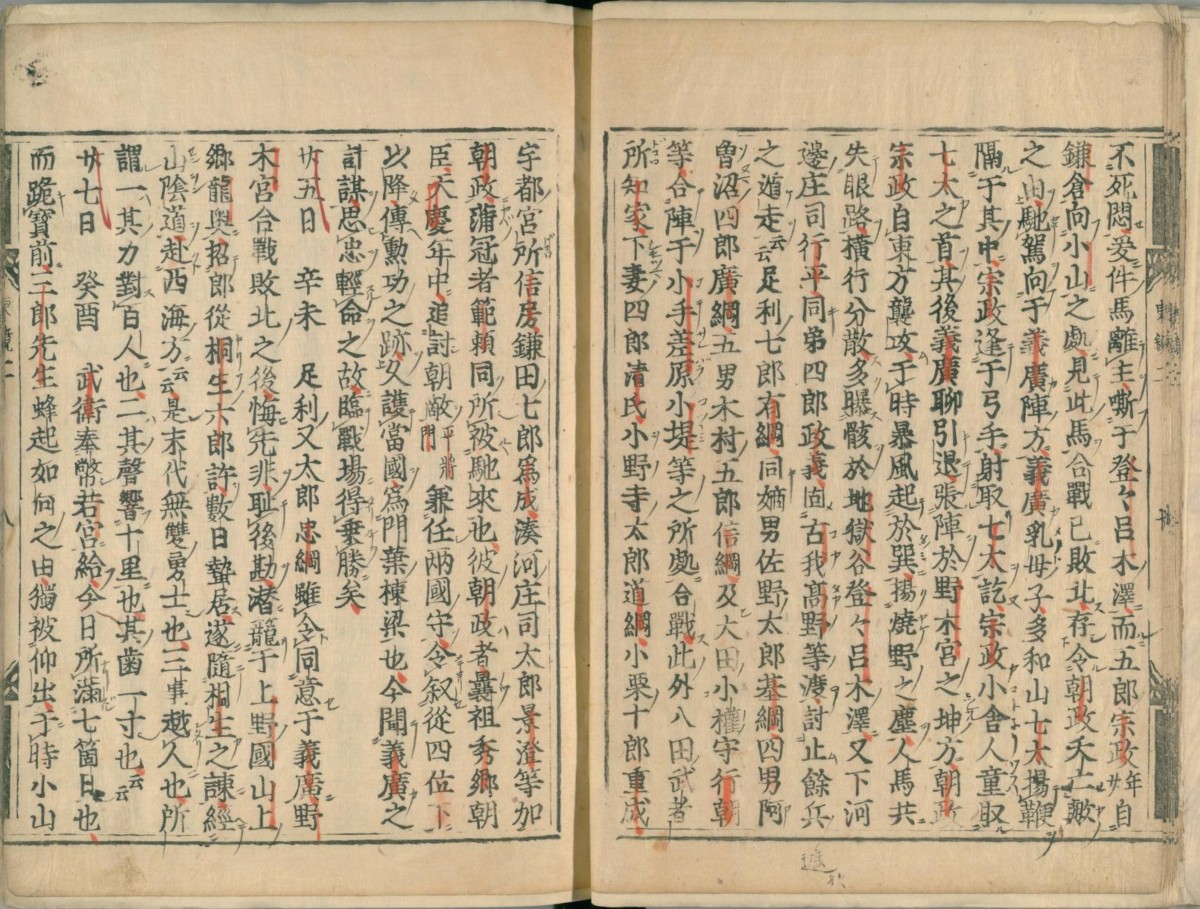 不死悶、爰件馬離主、嘶于登々呂木澤、而五郎宗政年廿自
鎌倉向小山之處、見此馬、合戰已敗北、存令朝政夭亡歟
之由、馳駕向于義廣陣方、義廣乳母子、多和山七太揚鞭
隔于其中、宗政逢于弓手、射取七太訖、宗政小舍人童取
七太之首、其後義廣聊引退、張陣於野木宮之坤方、朝政
宗政自東方襲攻、于時暴風起於巽、揚燒野之塵、人馬共
失眼路、橫行分散、多曝骸於地獄谷登々呂木澤、又下河
邊庄司行平、同弟四郎政義、固古我髙野等渡、討止餘兵
之遁走云云足利七郎有綱、同嫡男佐野太郎基綱、四男阿
曾沼四郎廣綱、五男木村五郎信綱、及大田小權守行朝
等、合陣于小手差原小堤等之所處合戰、此外八田武者
所知家、下妻四郎淸氏、小野寺太郎道綱、小栗十郎重成
宇都宮所信房、鎌田七郎爲成、湊河庄司太郎景澄等加
朝政、蒲冠者範賴同所被馳來也、彼朝政者曩祖秀郷朝
臣、天慶年中追討朝敵平將門兼任兩國守、令叙從四位下
以降、傳勳功之跡、久護當國、爲門葉棟梁也、今聞義廣之
計謀、思忠輕命之故、臨戰場得乗勝矣
廿五日　辛未　足利又太郎忠綱雖令同意于義廣、野
木宮合戰敗北之後、悔先非耻後勘、潛籠于上野國山上
郷龍奥、招郎從桐生六郎許、數日蟄居、遂隨桐生之諫、經
山陰道、赴西海方云云是末代無雙勇士也、三事越人也、所
謂一、其力對百人也、二、其聲響十里也、其歯一寸也、云云
廿七日　癸酉　武衛奉幣若宮給、今日所滿七箇日也、
而跪寶前、三郎先生蜂起如何之由、獨被仰出、于時小山